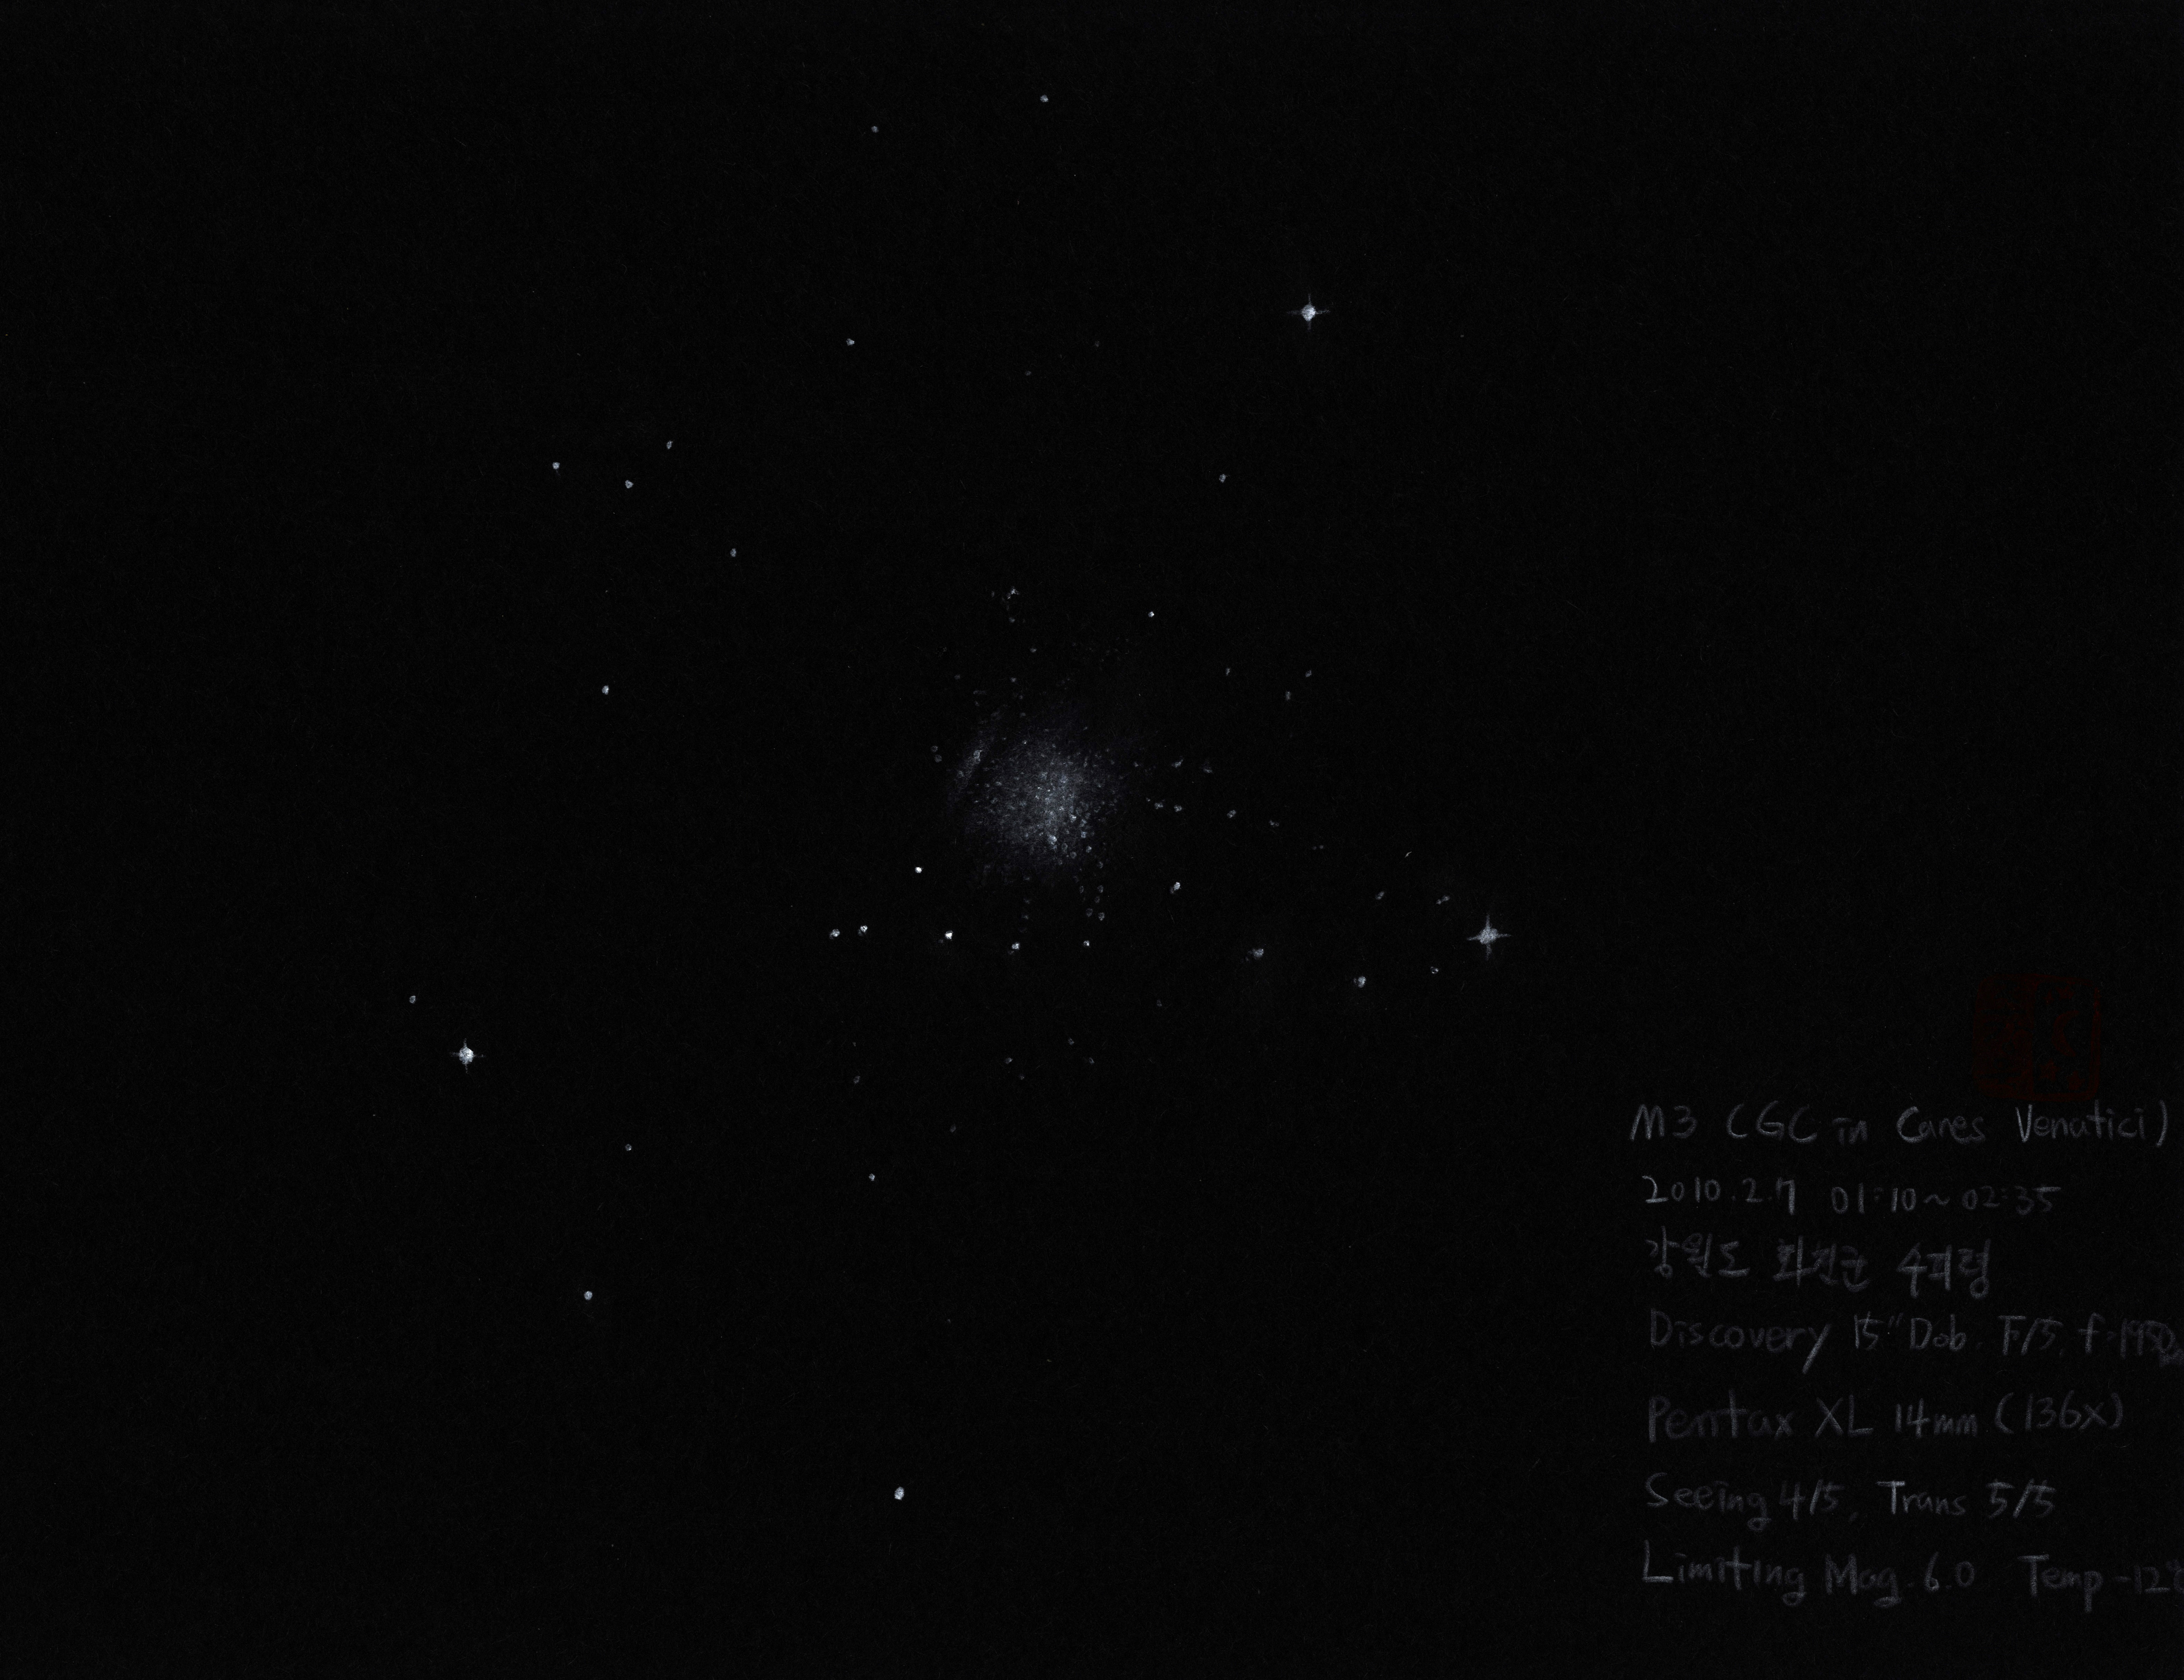 M3 (GC in Canes Venatici)
2010.2.7 01:10~02:35
강원도 화천군 수피령
Discovery 15" Dob. F/5, f=1950
Pentax XL 14mm (136x)
Seeing 4/5, Trans 5/5
Limiting Mag. 6.0 Temp -12°C